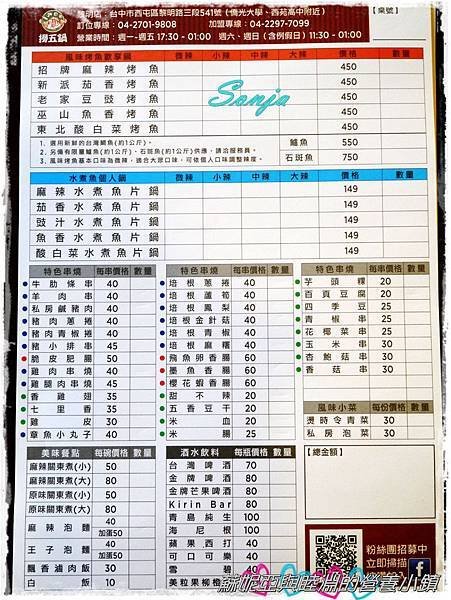 撈五鍋
黎明店：台中市西屯區黎明路三段541號（僑光大學、西苑高中附近）
訂位專線：04-2701-9808 加盟專線：04-2297-7099
營業時間：週一-週五 17:30 - 01:00 週六、週日（含例假日）11:30 - 01:00
【桌號】
風味烤魚歡享鍋 微辣 小辣 中辣 大辣 價格 數量
招牌麻辣烤魚 450
新派茄香烤魚 450
老家豆豉烤魚 450
巫山魚香烤魚 450
東北酸白菜烤魚 450
Sonja
1、選用新鮮的台灣鯛魚(約1公斤)。 鱸魚 550
2、另備有限量鱸魚(約1公斤)、石斑魚(約1公斤)供應，請洽服務員。
3、風味烤魚基本口味為微辣，適合大眾口味，可依個人口味調整辣度。 石斑魚 750
水煮魚個人鍋 微辣 小辣 中辣 大辣 價格 數量
麻辣水煮魚片鍋 149
茄香水煮魚片鍋 149
豉汁水煮魚片鍋 149
魚香水煮魚片鍋 149
酸白菜水煮魚片鍋 149
特色串燒 每串價格 數量
牛肋條串 40
羊肉串 40
私房鹹豬肉 40
豬肉蔥捲 40
豬肉青椒捲 40
豬小排串 45
脆皮肥腸 50
雞肉串燒 40
雞腿肉串燒 45
香雞翅 35
七里香 35
雞皮 30
章魚小丸子 40
特色串燒 每串價格 數量
培根蔥捲 40
培根蘆筍 40
培根鳳梨 40
培根金針菇 40
培根青椒 40
培根麻糬 40
飛魚卵香腸 60
墨魚香腸 60
櫻花蝦香腸 60
甜不辣 20
五香豆干 20
米血 20
米腸 25
特色串燒 每串價格 數量
芋頭粿 25
百頁豆腐 20
四季豆 25
青椒串 25
花椰菜串 25
玉米串 30
杏鮑菇串 30
香菇串 30
風味小菜 每份價格 數量
燙時令青菜 30
私房泡菜 30
美味餐點 每碗價格 數量
麻辣關東煮(小) 50
麻辣關東煮(大) 80
原味關東煮(小) 50
原味關東煮(大) 80
麻辣泡麵 40 加蛋50
王子泡麵 40 加蛋50
飄香滷肉飯 30
白飯 10
酒水飲料 每瓶價格 數量
台灣啤酒 70
金牌啤酒 80
金牌芒果啤酒 80
Kirin Bar 80
青島純生 100
海尼根 100
蘋果西打 40
可口可樂 40
雪碧 40
美粒果柳橙
【總金額】
粉絲團招募中
立即掃描
蘇妮亞與哇淵的營養小鎮